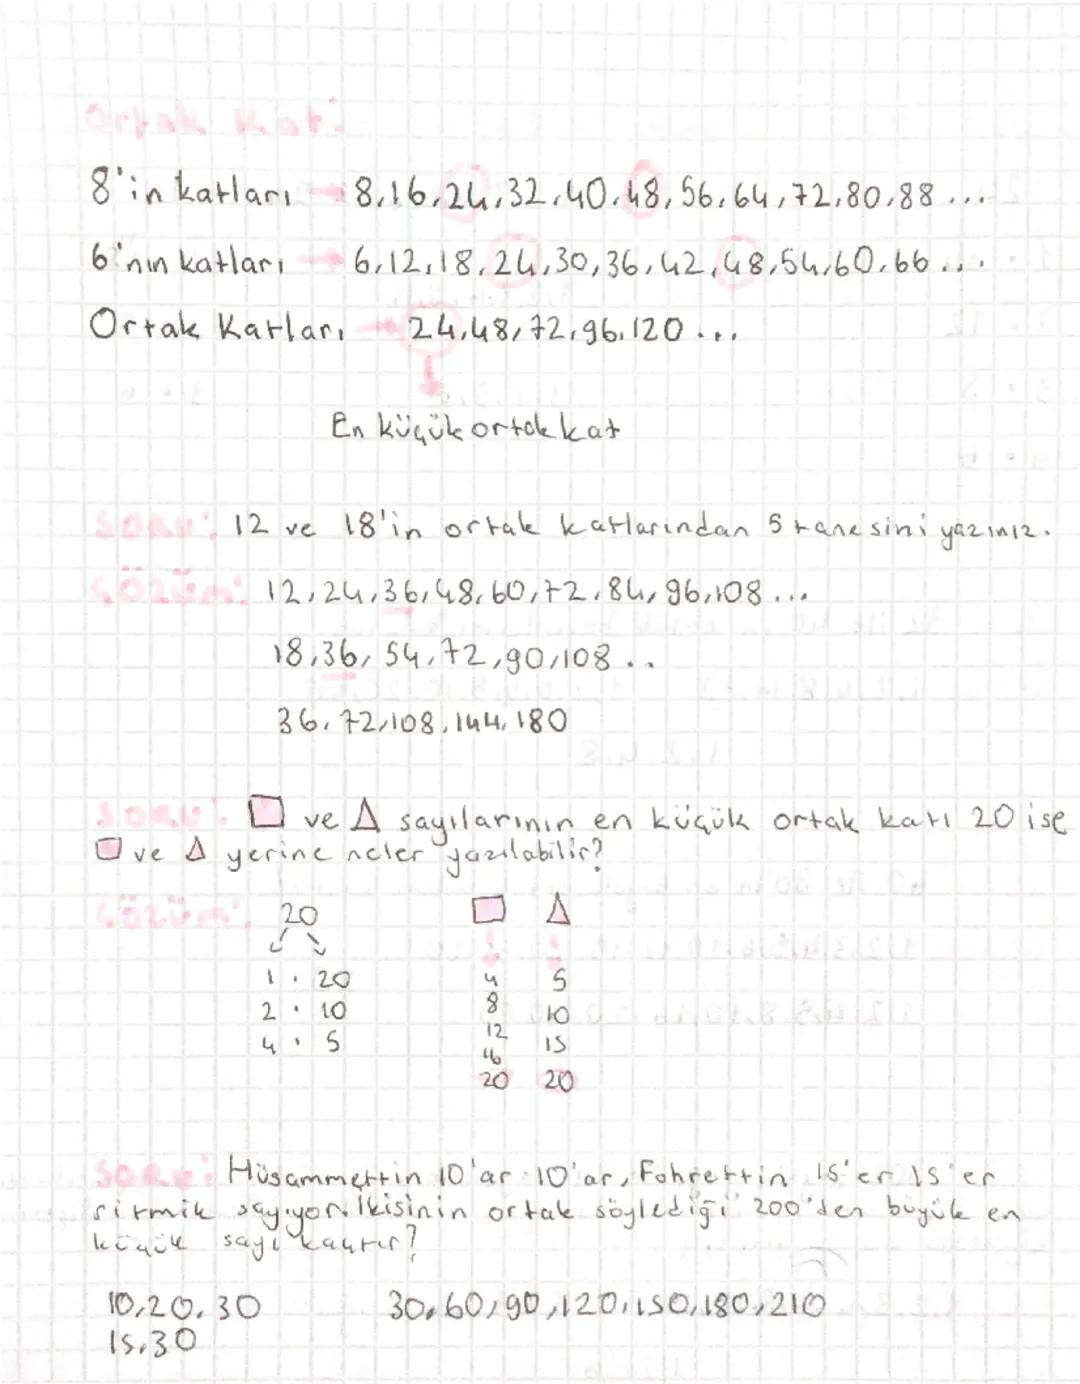 Ortak Kat:
8'in katları → 8,16,24,32,40,48,56,64,72,80,88...
6'nın katları → 6,12,18,24,30,36,42,48,54,60,66...
Ortak Katları → 24,48,72,96,120...
En küçük ortak kat
SORU: 12 ve 18'in ortak katlarından 5 tanesini yazınız.
ÇÖZÜM: 12,24,36,48,60,72,84,96,108...
18,36,54,72,90,108..
36,72,108,144,180
SORU: □ ve △ sayılarının en küçük ortak katı 20 ise
□ ve △ yerine neler yazılabilir?
ÇÖZÜM: 20 □ △
1 . 20 4 5
2 . 10 8 10
4 . 5 12 15
16
20 20
SORU: Hüsammettin 10'ar 10'ar, Fahrettin 15'er 15'er
ritmik sayıyor. İkisinin ortak söylediği 200'den büyük en
küçük sayı kaçtır?
10,20,30 30,60,90,120,150,180,210
15,30